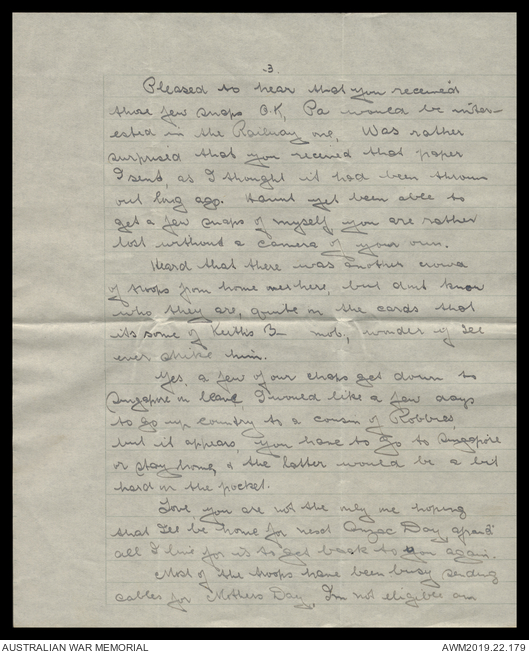 3.
Pleased to hear that you received
those few snaps O.K, Pa would be inter-
ested in the Railway one, Was rather
surprised that you received that paper
I sent as I thought it had been thrown
out long ago. Havnt yet been able to
get a few snaps of myself you are rather
lost without a camera of your own.
Heard that there was another crowd
of troops from home near here, but dont know
who they are, quite on the cards that
its some of Keiths B— mob, wonder if I'll
ever strike him.
Yes, a few of our chaps get down to
Singapore on leave, I would like a few days
to go up country to a cousin of Robbies,
but it appears, you have to go to Singapore
or stay home, & the latter would be a bit
hard in the pocket.
Love you are not the only one hoping
that I'll be home for next Anzac Day,
all I live for is to get back to you again.
Most of the troops have been busy sending
cables for Mothers Day, I'm not eligible am
AUSTRALIAN WAR MEMORIAL
AWM2019.22.179